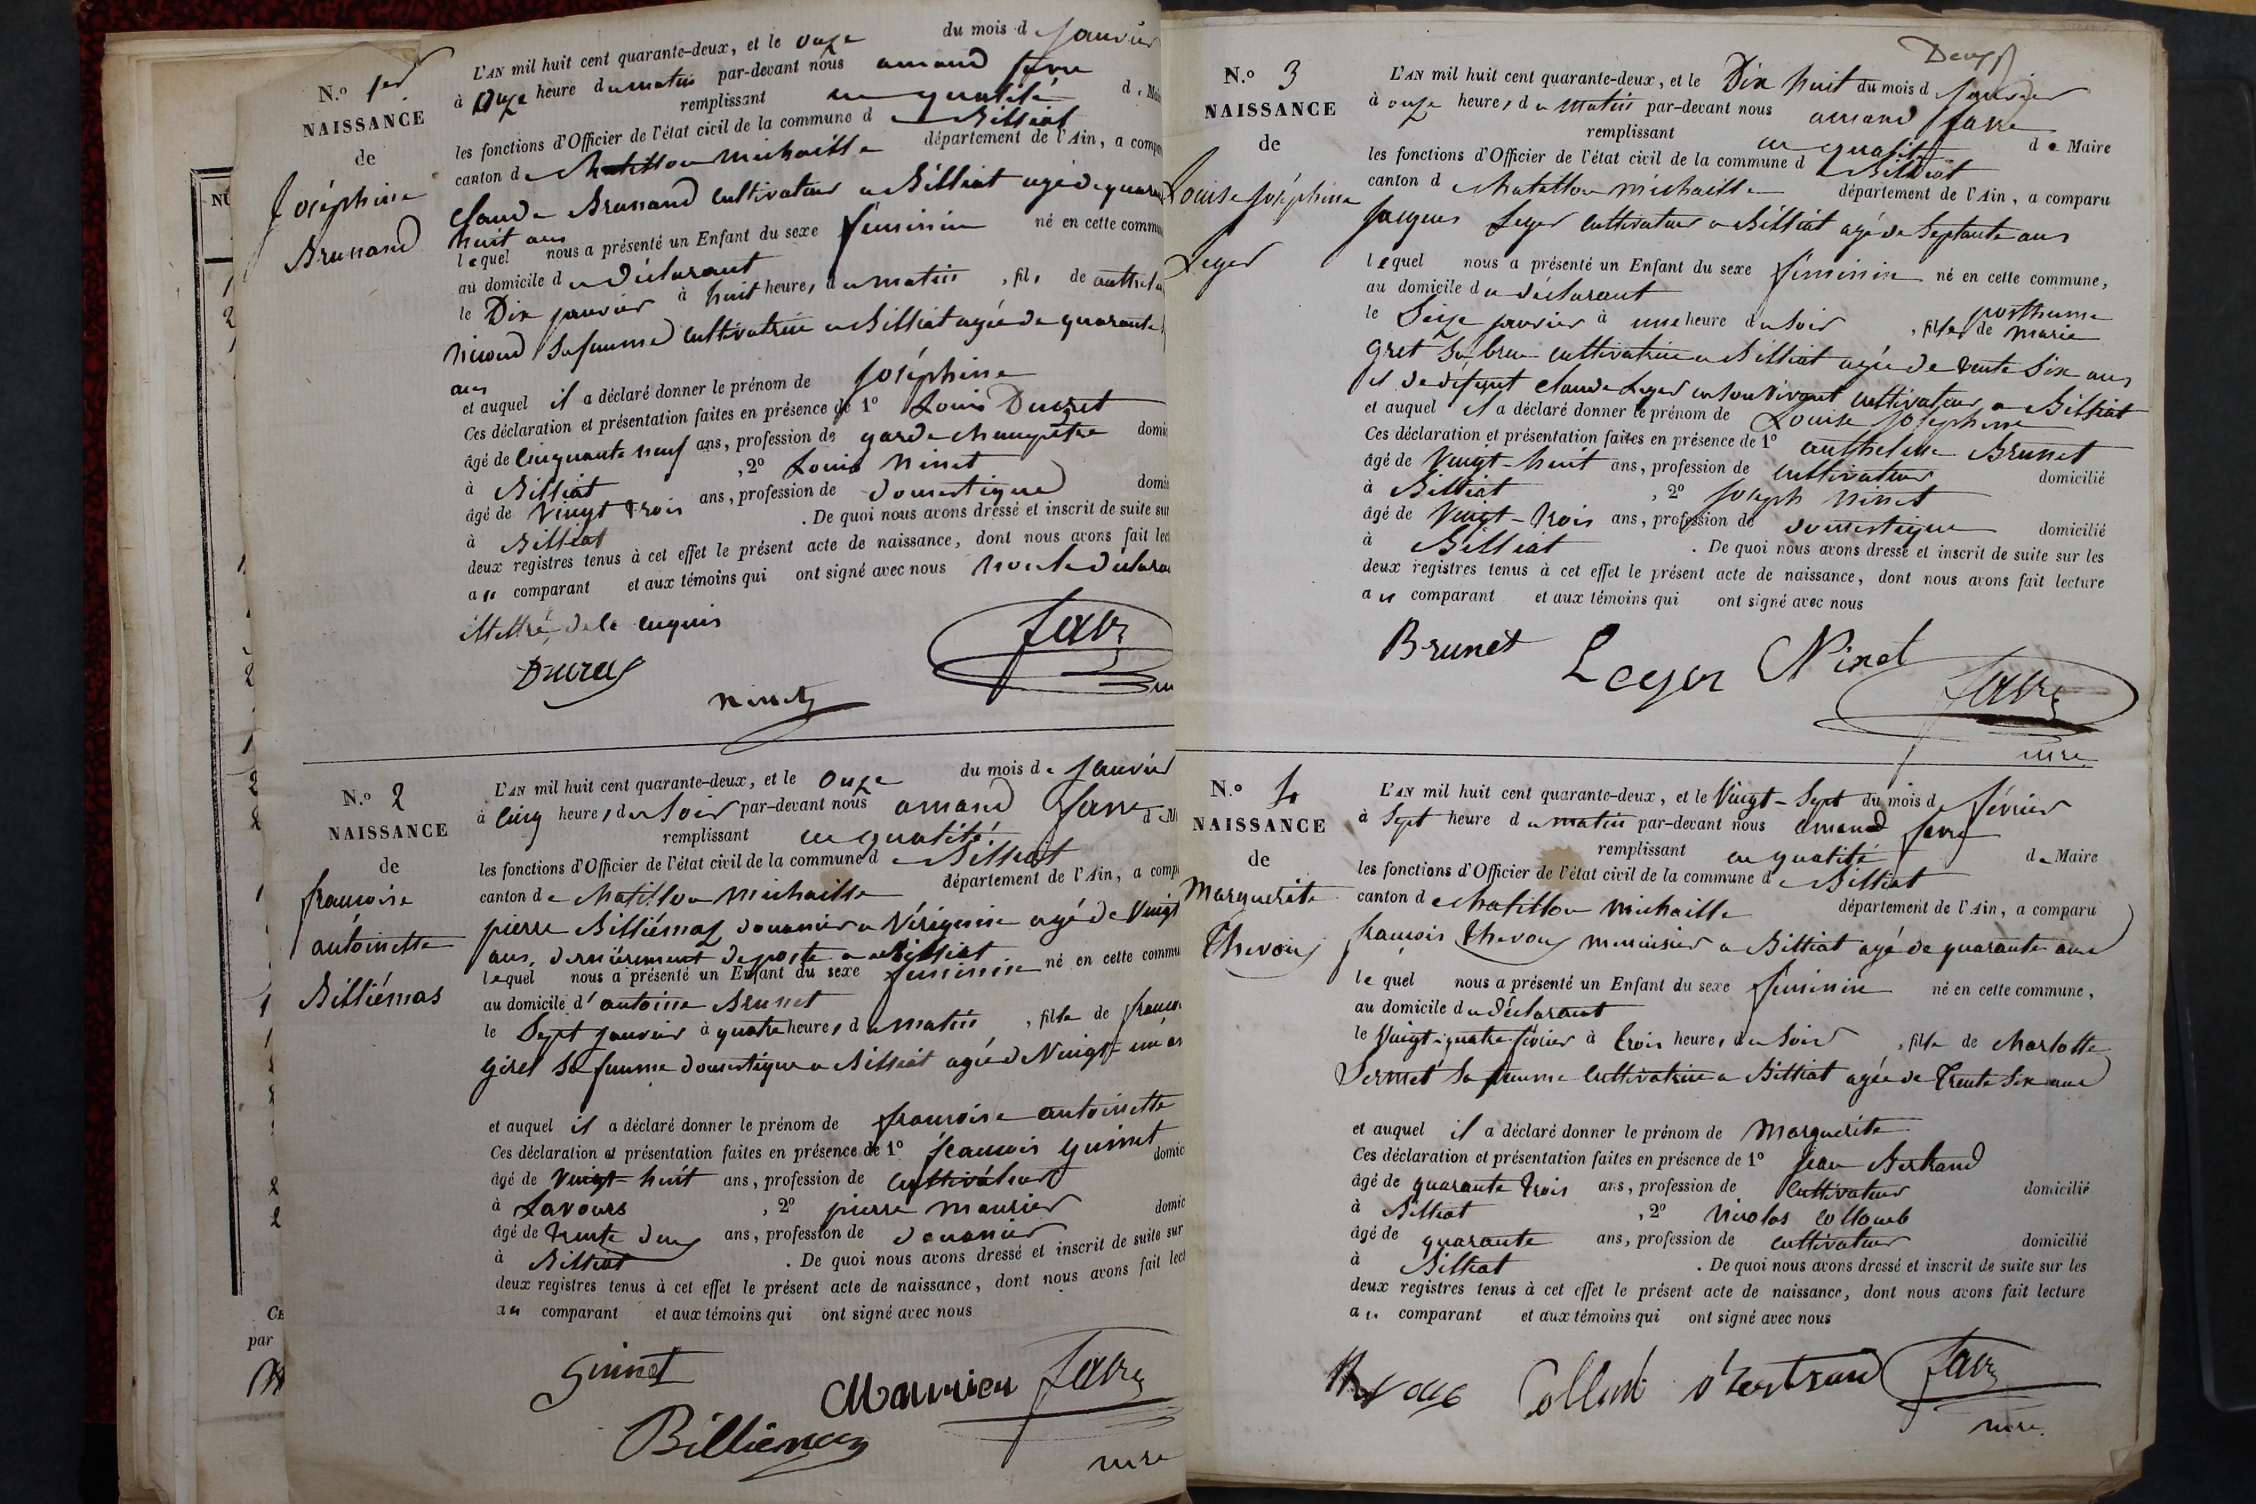 N.o 1er
NAISSANCE
de
Joséphine
Brunand
L'AN mil huit cent quarante-deux, et le onze du mois d janvier
à onze heure du matin par-devant nous amand favre
remplissant en qualité de
les fonctions d'Officier de l'état civil de la commune d Billiat
canton de chatillon michaille département de l'Ain, a
claude Brunand cultivateur a Billiat agé de
huit ans
lequel nous a présenté un Enfant du sexe féminin né en cette
au domicile du déclarant
le Dix janvier à huit heures du matin , fil de
nicoud sa femme cultivatrice a Billiat agée de quarante
ans
et auquel il a déclaré donner le prénom de Joséphine
Ces déclaration et présentation faites en présence de 1o Louis Ducret
âgé de cinquante neuf ans, profession de garde champêtre
à Billiat , 2o Louis Ninet
âgé de vingt trois ans, profession de domestique
à Billiat . De quoi nous avons dressé et inscrit de suite
deux registres tenus à cet effet le présent acte de naissance, dont nous avons fait
au comparant et aux témoins qui ont signé avec nous non le
illettré de ce enquis
favre
Ducret
ninet
N.o 2
NAISSANCE
de
françoise
antoinette
Billiémas
L'AN mil huit cent quarante-deux, et le onze du mois de janvier
à cinq heures du soir par-devant nous amand favre
remplissant en qualité
les fonctions d'Officier de l'état civil de la commune de Billiat
canton de chatillon michaille département de l'Ain, a
pierre Billiémaz douanier a agé de vingt
ans, dernièrement de poste a Billiat
lequel nous a présenté un Enfant du sexe féminin né en cette
au domicile d'antoine Brunet
le sept janvier à quatre heures du matin , fille de
girel sa femme domestique a Billiat agée de vingt un
et auquel il a déclaré donner le prénom de françoise antoinette
Ces déclaration et présentation faites en présence de 1o françois guinet
âgé de vingt huit ans, profession de cultivateur
à Lavours , 2o pierre maurier
âgé de trente deux ans, profession de douanier
à Billiat . De quoi nous avons dressé et inscrit de suite sur
deux registres tenus à cet effet le présent acte de naissance, dont nous avons fait
au comparant et aux témoins qui ont signé avec nous
guinet
Maurier favre
Billiémaz
mre
Deux
N.o 3
NAISSANCE
de
Louise Joséphine
Leger
L'AN mil huit cent quarante-deux, et le Dix huit du mois d janvier
à onze heures du matin par-devant nous amand favre
remplissant en qualité de Maire
les fonctions d'Officier de l'état civil de la commune d Billiat
canton d chatillon michaille département de l'Ain, a comparu
jacques Leger cultivateur a Billiat agé de septante ans
lequel nous a présenté un Enfant du sexe féminin né en cette commune,
au domicile du déclarant
le seize janvier à une heure du soir , fille posthume de marie
gret sa bru cultivatrice a Billiat agée de trente six ans
et de défunt claude Leger en son vivant cultivateur a Billiat
et auquel il a déclaré donner le prénom de Louise Joséphine
Ces déclaration et présentation faites en présence de 1o anthelme Brunet
âgé de vingt-huit ans, profession de cultivateur domicilié
à Billiat , 2o joseph ninet
âgé de vingt-trois ans, profession de domestique domicilié
à Billiat . De quoi nous avons dressé et inscrit de suite sur les
deux registres tenus à cet effet le présent acte de naissance, dont nous avons fait lecture
au comparant et aux témoins qui ont signé avec nous
Brunet Leger Ninet
favre
mre
N.o 4
NAISSANCE
de
Marguerite
Thevoux
L'AN mil huit cent quarante-deux, et le vingt-sept du mois de février
à sept heure du matin par-devant nous amand favre
remplissant en qualité de Maire
les fonctions d'Officier de l'état civil de la commune de Billiat
canton de chatillon michaille département de l'Ain, a comparu
françois Thevoux menuisier a Billiat agé de quarante ans
lequel nous a présenté un Enfant du sexe féminin né en cette commune,
au domicile du déclarant
le vingt-quatre février à trois heures du soir , fille de charlotte
Sermet sa femme cultivatrice a Billiat agée de trente six ans
et auquel il a déclaré donner le prénom de Marguerite
Ces déclaration et présentation faites en présence de 1o jean Bertrand
âgé de quarante trois ans, profession de cultivateur domicilié
à Billiat , 2o nicolas collomb
âgé de quarante ans, profession de cultivateur domicilié
à Billiat . De quoi nous avons dressé et inscrit de suite sur les
deux registres tenus à cet effet le présent acte de naissance, dont nous avons fait lecture
au comparant et aux témoins qui ont signé avec nous
Bertrand favre
mre